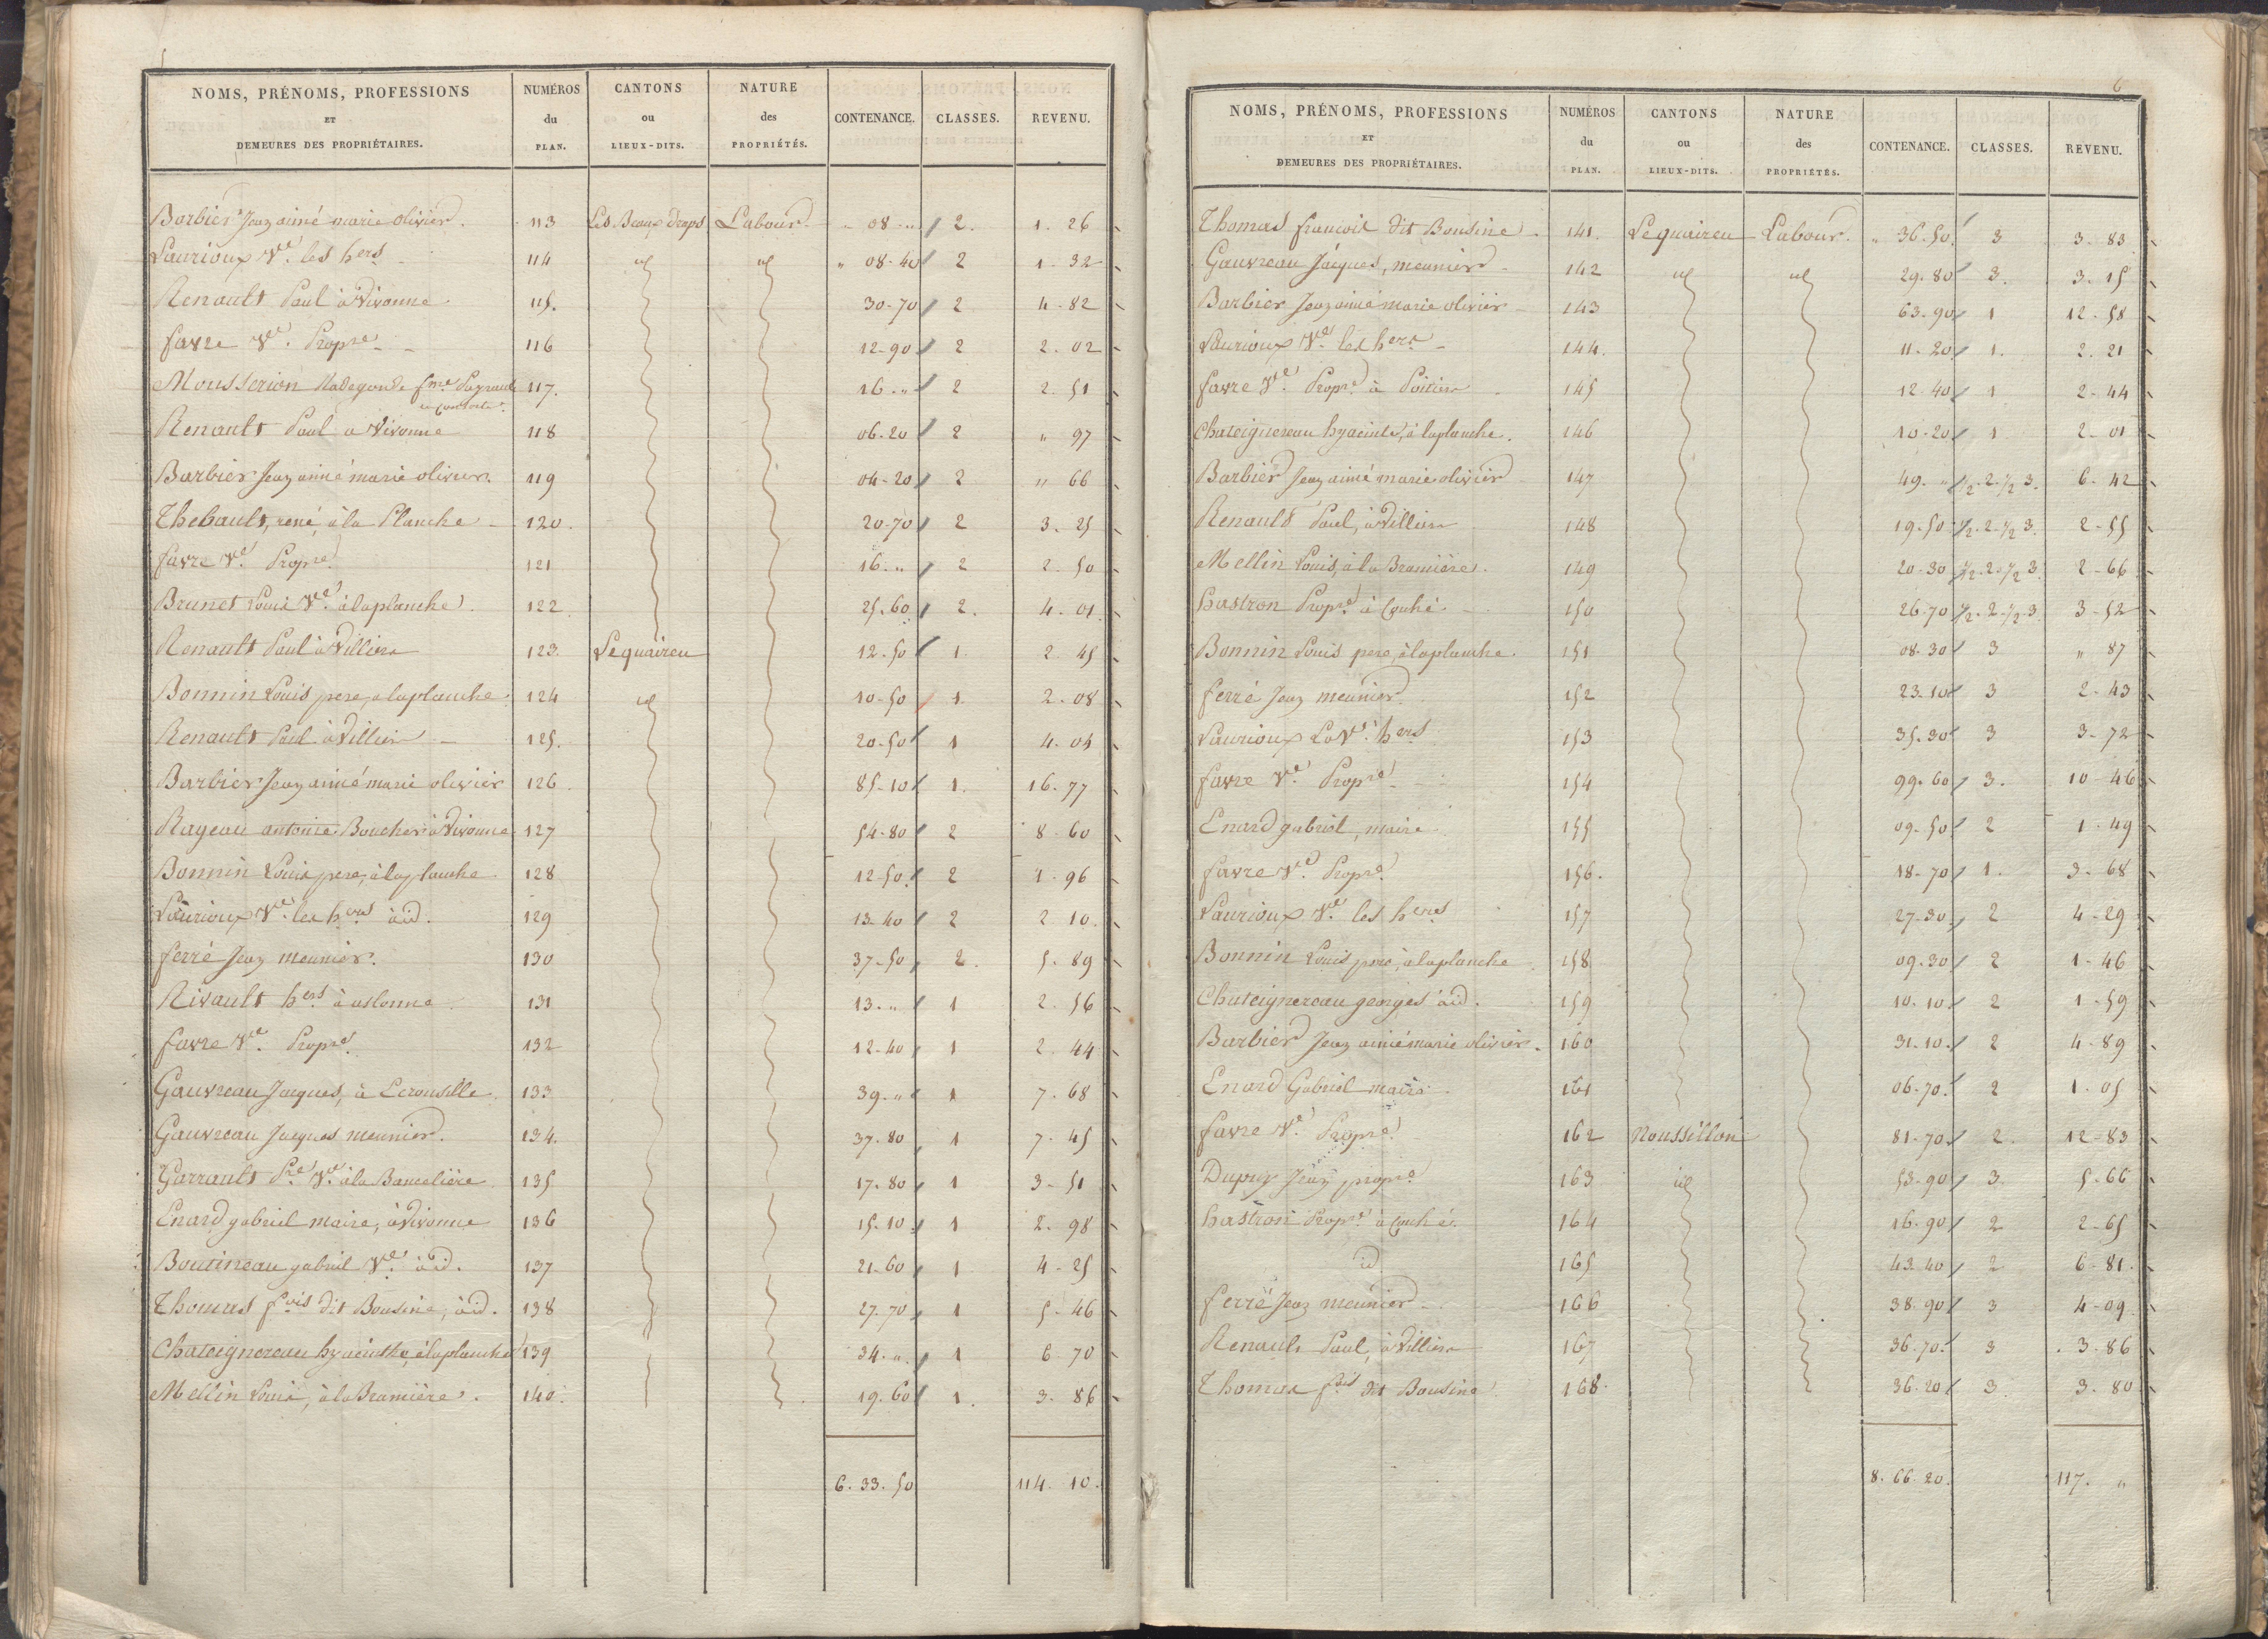 NOMS, PRÉNOMS, PROFESSIONS ET DEMEURES DES PROPRIÉTAIRES. NUMÉROS du PLAN. CANTONS ou LIEUX-DITS. NATURE des PROPRIÉTÉS. CONTENANCE. CLASSES. REVENU.
Barbier Jean aimé marie olivier. 113 Les Beaux draps Labour " 08 - " 2. 1. 26
Laurioux Vve. les hers 114 id id " 08-40 2 1. 32
Renault Paul à Vivonne 115. 30-70 2 4-82
favre Ve. Propre 116 12-90 2 2. 02
Mousserion Radegonde fme Pagrault 117. 16. " 2 2. 51
Renault Paul a Vivonne 118 06-20 2 " 97
Barbier Jean aimé marie olivier. 119 04-20 2 " 66
Thebault, rené, à la Planche 120. 20-70 2 3. 25
favre Ve. Propre. 121 16. " 2 2. 50
Brunet Louis Ve. à la planche. 122 25.60 2. 4. 01
Renault Paul à Villiers 123 Le quaireu 12.50 1. 2. 45
Bonnin Louis pere, a la planche 124 id 10-50 1. 2. 08
Renault Paul à Villiers 125. 20-50 1 4. 04
Barbier Jean aimé marie olivier 126 85-10 1. 16. 77
Rageau antoine Boucher à Vivonne 127 54-80 2 8-60
Bonnin Louis pere, à la planche 128 12-50 2 1. 96
Laurioux Ve. les hers à id. 129 13-40 2 2. 10.
ferré Jean meunier. 130 37-50 2. 5. 89
Rivault hers à aslonne 131 13. " 1 2. 56
favre Ve. Propre 132 12-40 1 2. 44
Gauvreau Jacques, à Lerousille 133 39. " 1 7. 68
Gauvreau Jacques meunier. 134. 37.80 1 7. 45
Garrault Pre Ve. à la Banceliére 135 17-80 1 3-51
Enard gabriel maire, à Vivonne 136 15.10 1 2. 98
Boutineau gabriel Ve. à id. 137 21-60 1 4-25
Thomas fois dit Bousine, à id. 138 27.70 1 5-46
Chateignereau hyacinthe, à la planche 139 34. " 1 6 70
Mellin Louis, à la Bramière. 140. 19.60 1. 3. 86
6. 33. 50 114. 10.
6
NOMS, PRÉNOMS, PROFESSIONS ET DEMEURES DES PROPRIÉTAIRES. NUMÉROS du PLAN. CANTONS ou LIEUX-DITS. NATURE des PROPRIÉTÉS. CONTENANCE. CLASSES. REVENU.
Thomas francois dit Bousine 141. Le quaireu Labour. " 36.50. 3 3. 83
Gauvreau Jacques, meunier 142 id id 29.80 3. 3. 15
Barbier Jean aimé marie olivier 143 63-90 1 12-58
Laurioux Ve. les hers 144. 11-20 1. 2. 21
favre Ve. Propre à Poitiers 145 12-40 1 2-44
Chateignereau hyacinte, à la planche. 146 10-20 1 2-01
Barbier Jean aimé marie olivier 147 49. " 1/2.2.1/2 3. 6-42
Renault Paul, à Villiers 148 19.50 1/2.2.1/2 3. 2-55
Mellin Louis, à la Bramière. 149 20-30 1/2.2.1/2 3. 2-66
hastron Propre à Couhé. 150 26-70 1/2.2.1/2.3 3-52
Bonnin Louis pere, à la planche. 151 08-30 3 " 87
ferré Jean meunier. 152 23-10 3 2-43
Laurioux La Ve. hers 153 35.30 3 3-72
favre Ve. Propre 154 99.60 3. 10-46
Enard gabriel, maire 155 09-50 2 1-49
favre Ve. Propre. 156. 18-70 1. 3. 68
Laurioux Ve. les hers 157 27-30 2 4-29
Bonnin Louis pere, à la planche 158 09-30 2 1-46
Chateignereau georges à id. 159 10.10. 2 1-59
Barbier Jean aimé marie olivier. 160 31.10. 2 4-89
Enard Gabriel maire 161 06-70. 2 1. 05
favre Ve. Propre. 162 Noussillon 81-70 2. 12-83
Dupuy Jean propre 163 id 53-90 3 5-66
hastron Propre à Couhé. 164 16.90 2 2-65
id 165 43-40 2 6-81.
ferré Jean meunier 166 38.90 3 4-09
Renault Paul, à Villiers 167 36-70. 3 3-86
Thomas fois dit Bousine 168. 36-20 3. 3. 80
8. 66. 20. 117. "